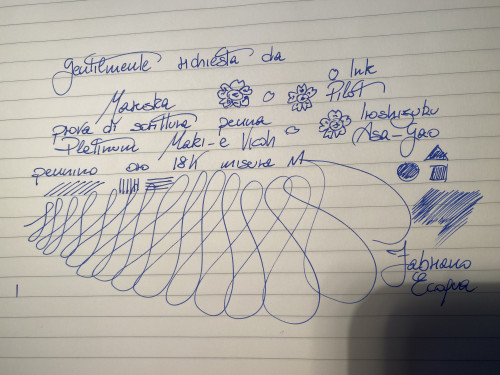 gentilmente richiesta da
Maruska
o Ink
Pilot
prova di scrittura penna
Iroshizuku
Platinum Maki-e
Asa-Gao
pennino oro 18k misura M
Fabriano
Ecoqua